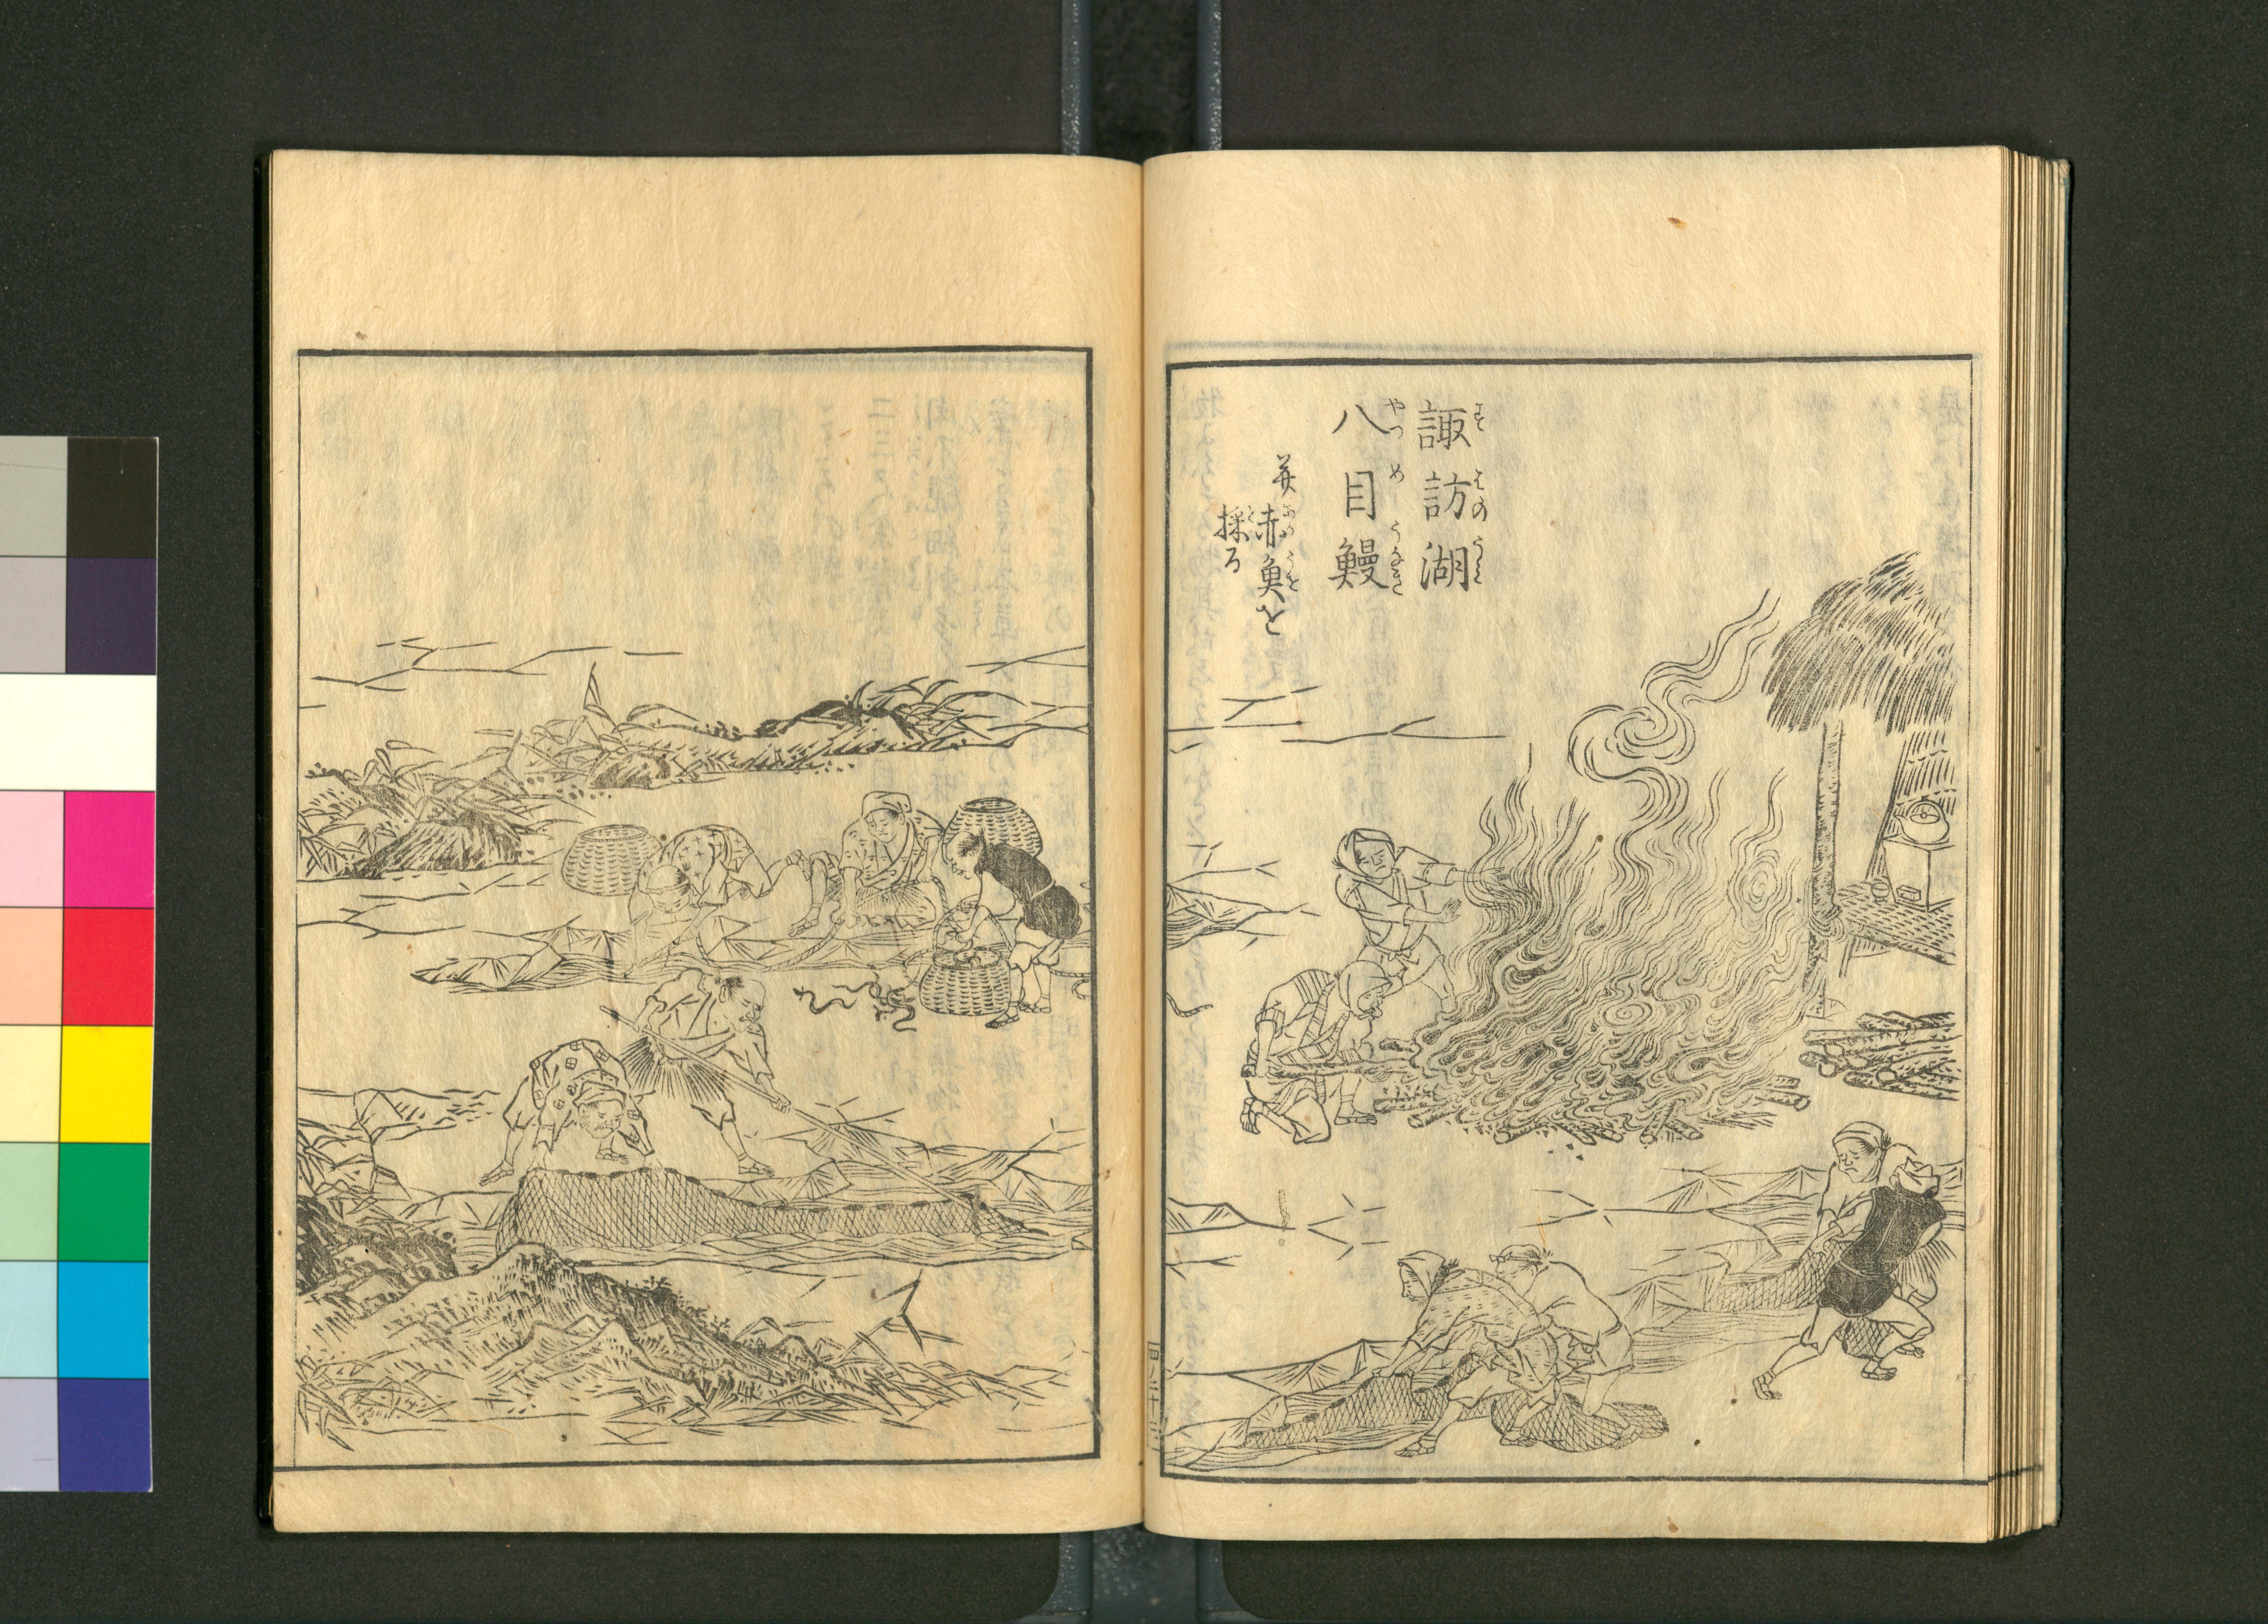 諏訪湖
八目鰻
并赤魚を
採る